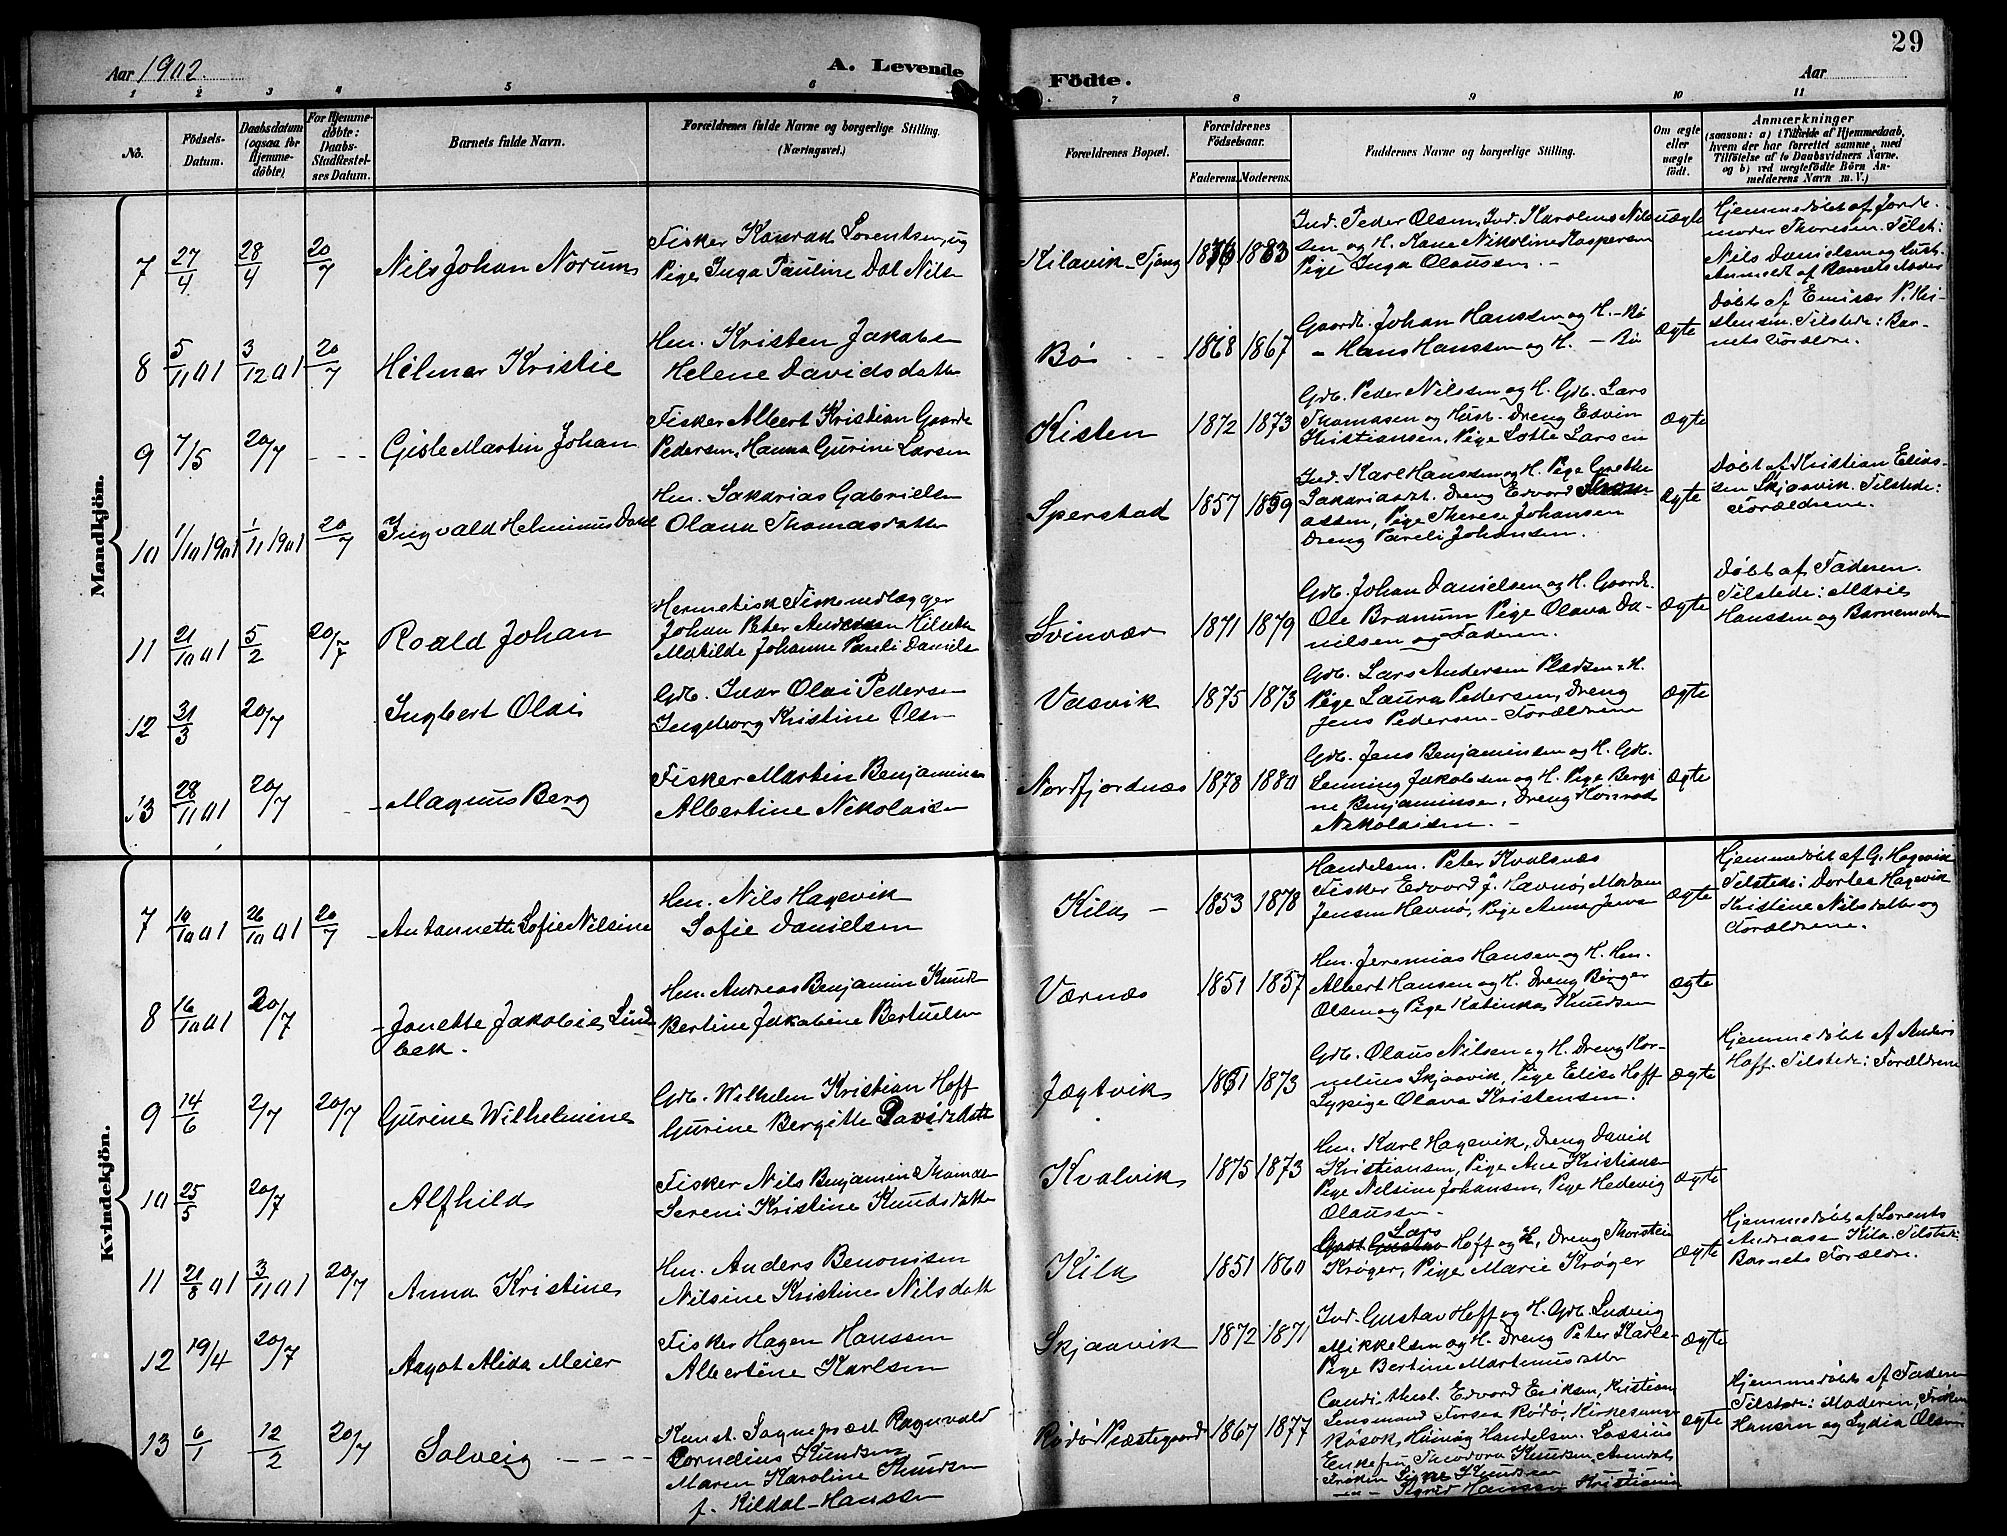 Aar 1902.
A. Levende
Födte.
Aar
29
1 2 3 4 5 6 7 8 9 10 11
No.
Födsels-
Datum.
Daabsdatum
(ogsaa for
Hjemme-
döbte)
For Hjemme-
döbte:
Daabs-
Stadfæstel-
ses Datum.
Barnets fulde Navn.
Forældrenes fulde Navne og borgerlige Stilling.
(Næringsvei.)
Forældrenes Bopæl.
Forældrenes
Födselsaar.
Faderens. Moderens.
Faddernes Navne og borgerlige Stilling.
Om ægte
eller
uægte
født.
Anmærkninger
(saasom: a) i Tilfælde af Hjemmedaab,
hvem der har forrettet samme, med
Tilföielse af to Daabsvidners Navne.
og b) ved uægtefödte Börn An-
melderens Navn m. V.)
Mandkjön.
7 27/4 28/4 20/7 Nils Johan Norum
Fisker Konrad Lorentsen og
Pige Inga Pauline Dol Nils
Kilavik - Tjong 1876 1883
Ind. Peder Olsen, Ind. Karolius Nil-
sen og H. Kane Nikoline Kaspersen
Pige Inga Olaussen. -
uægte
Hjemmedøbt af Jorde-
moder Thoresen. Tilst:
Nils Danielsen og Hust.
Anmeldt af Barnets Moder
8 5/11 01 3/12 01 20/7 Hilmar Kristie
Hm. Kristen Jakobs
Helene Davidsdatter
Bø - - 1868 1867
Gaardb. Johan Hanssen og H. - Bø
- Hans Hanssen og H. - Bø
ægte
Døbt af Emisær P. Kri-
stensen. Tilstede: Bar-
nets Forældre.
9 7/5 20/7 - - - Gisle Martin Johan
Fisker Albert Kristian Gaarde
Pedersen, Hanna Gurine Larsen
Kisten 1872 1873
Grb. Peder Nilssen og H. Gdb. Lars
Thomassen og Hust. Dreng Edvin
Kristiansen, Pige Lotte Larsen
ægte
10 1/10 1901 1/11 1901 20/7 Ingvald Helminus Dahl
Hm. Sakarias Gabrielsen
Olava Thomasdatter
Sperstad 1857 1859
Ind. Karl Hanssen og H. Pige Grethe
Sakariasdt. Dreng Edvard
Pige Therese Johansen
Dreng Pareli Johansen.
ægte
Døbt af Kristian Elias-
sen Skjaavik. Tilstede:
Forældrene.
11 21/10 01 5/2 20/7 Roald Johan
Hermetisk Fiskenedlægger
Johan Peter Andreassen
Matilde Johanne Pareli Daniels
Svinvær 1871 1879
Gdb. Johan Danielsen og H. Gaardb.
Ole Branum Pige Olava Da-
nielsen og Faderen.
ægte
Døbt af Faderen.
Tilstede: Marie
Hanssen og Barnemoder
12 31/3 20/7 Ingbert Olai
Gdb. Ivar Olai Pedersen
Ingeborg Kristine Olsen
Vasvik 1875 1873
Gdb. Lars Andersen Pladsen og H.
Pige Laura Pedersen, Dreng
Jens Pedersen - Forældrene
ægte
13 28/11 01 20/7 Magnus Berg
Fisker Martin Benjaminsen
Albertine Nikolaisen
Nordfjordnæs 1878 1880
Gdb. Jens Benjaminsen og H. Gdb.
Lenning Jakobsen og H. Pige Bergi-
ne Benjaminsen, Dreng Konrad
Nikolaisen. -
ægte
Kvindekjön.
7 10/10 01 26/10 01 20/7 Antonnette Sofie Nilsine
Hm. Nils Hagevik
Sofie Danielsen
Kila - 1853 1878
Handelsm. Peter Kvalsnæs
Fisker Edvard J. Havnø, Madam
Jensen Havnø, Pige Anna Jensen
ægte
Hjemmedøbt af G. Hagevik
Tilstede: Dortea Hagevik
Kristine Nilsdatter og
Forældrene.
8 16/10 01 20/7 Janette Jakobie Lind-
bek.
Hm. Andreas Benjamin Knud
Bertine Jakobine Bertuelsen
Værnæs 1851 1857
Hm. Jeremias Hansen og H. Hm.
Albert Hansen og H. Dreng Birger
Olsen og Pige Katinka Knudsen
ægte
9 14/6 2/7 20/7 Gurine Wilhelmine
Gdb. Wilhelm Kristian Hoff
Gurine Bergitte Davidsdatter
Jægtvik 1861 1873
Gdb. Olaus Nilsen og H. Dreng Kor-
nelius Skjaavik, Pige Elise Hoff
Sypige Olava Kristensen.
ægte
Hjemmedøbt af Anders
Hoff. Tilstede: Forældrene
10 25/5 20/7 Alfhild
Fisker Nils Benjamin Thomæs
Sereni Kristine Knudsdatter
Kvalvik 1875 1873
Hm. Karl Hagevik, Dreng David
Kristiansen, Pige Ane Kristiansen
Pige Nilsine Johansen, Pige Hedevig
Olaussen -
ægte
11 21/8 01 3/11 01 20/7 Anna Kristine
Hm. Anders Benonisen
Nilsine Kristine Nilsdatter
Kila 1851 1860
Lars
Gdb. Gustav Hoff og H, Dreng Thorstein
Krøger, Pige Marie Krøger
ægte
Hjemmedøbt af Lorents
Andreass. Kila. Tilstede:
Barnets Forældre.
12 19/4 20/7 Aagot Alida Meier
Fisker Hagen Hanssen
Albertine Karlsen
Skjaavik 1872 1871
Ind. Gustav Hoff og H. Gdb. Ludvig
Mikkelsen og H. Dreng Peter Karls-
Pige Bertine Martinusdatter
ægte
13 6/1 12/2 20/7 Solveig - - - -
Konst. Sogneprest Ragnvald
Cornelius Knudsen
Maren Karoline Knudsen
f. Kildal-Hanssen
Rødø Præstegaard 1867 1877
Cand. theol. Edvard Eriksen, Kristian
Lensmand Forsaa Rødø, Kirkesanger
Røsok, Handelsm. Lossius
Enkefru Theodora Knudsen, Arendal
Frøken Signe Knudsen
- " - Sigrid Hanssen Kristiania
ægte
Hjemmedøbt af Faderen
Tilstede: Moderen, Frøken
Hansen og Lydia Olsen